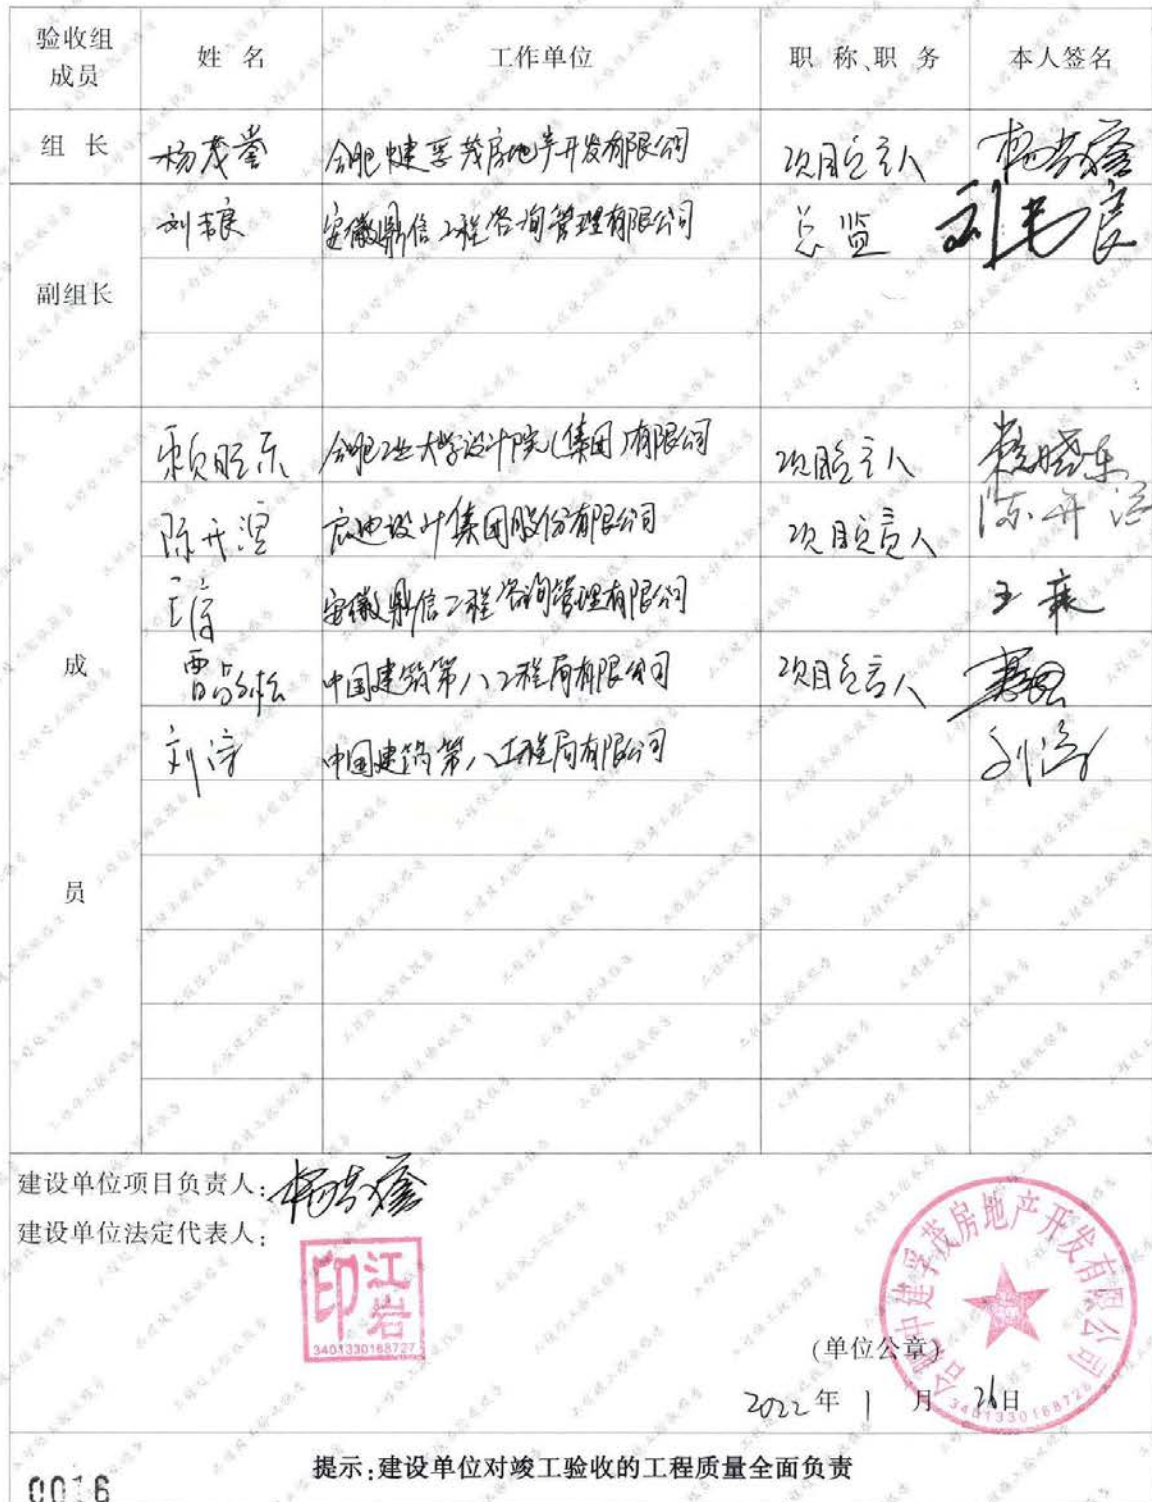 验收组成员 姓 名 工作单位 职 称、职 务 本人签名
组 长 杨茂 合肥中建孚茂房地产开发有限公司 项目负责人
副组长 刘 良 安徽鼎信工程咨询管理有限公司 总监 刘 良
成员
赖晓东 合肥工业大学设计院(集团)有限公司 项目负责人 赖晓东
陈开 启迪设计集团股份有限公司 项目负责人 陈开
王 安徽鼎信工程咨询管理有限公司 王
中国建筑第八工程局有限公司 项目负责人
刘 中国建筑第八工程局有限公司 刘
建设单位项目负责人:
建设单位法定代表人:
江岩印
3401330168727
合肥中建孚茂房地产开发有限公司
(单位公章)
2022年 1 月 26日
提示:建设单位对竣工验收的工程质量全面负责
0016
工程竣工验收报告